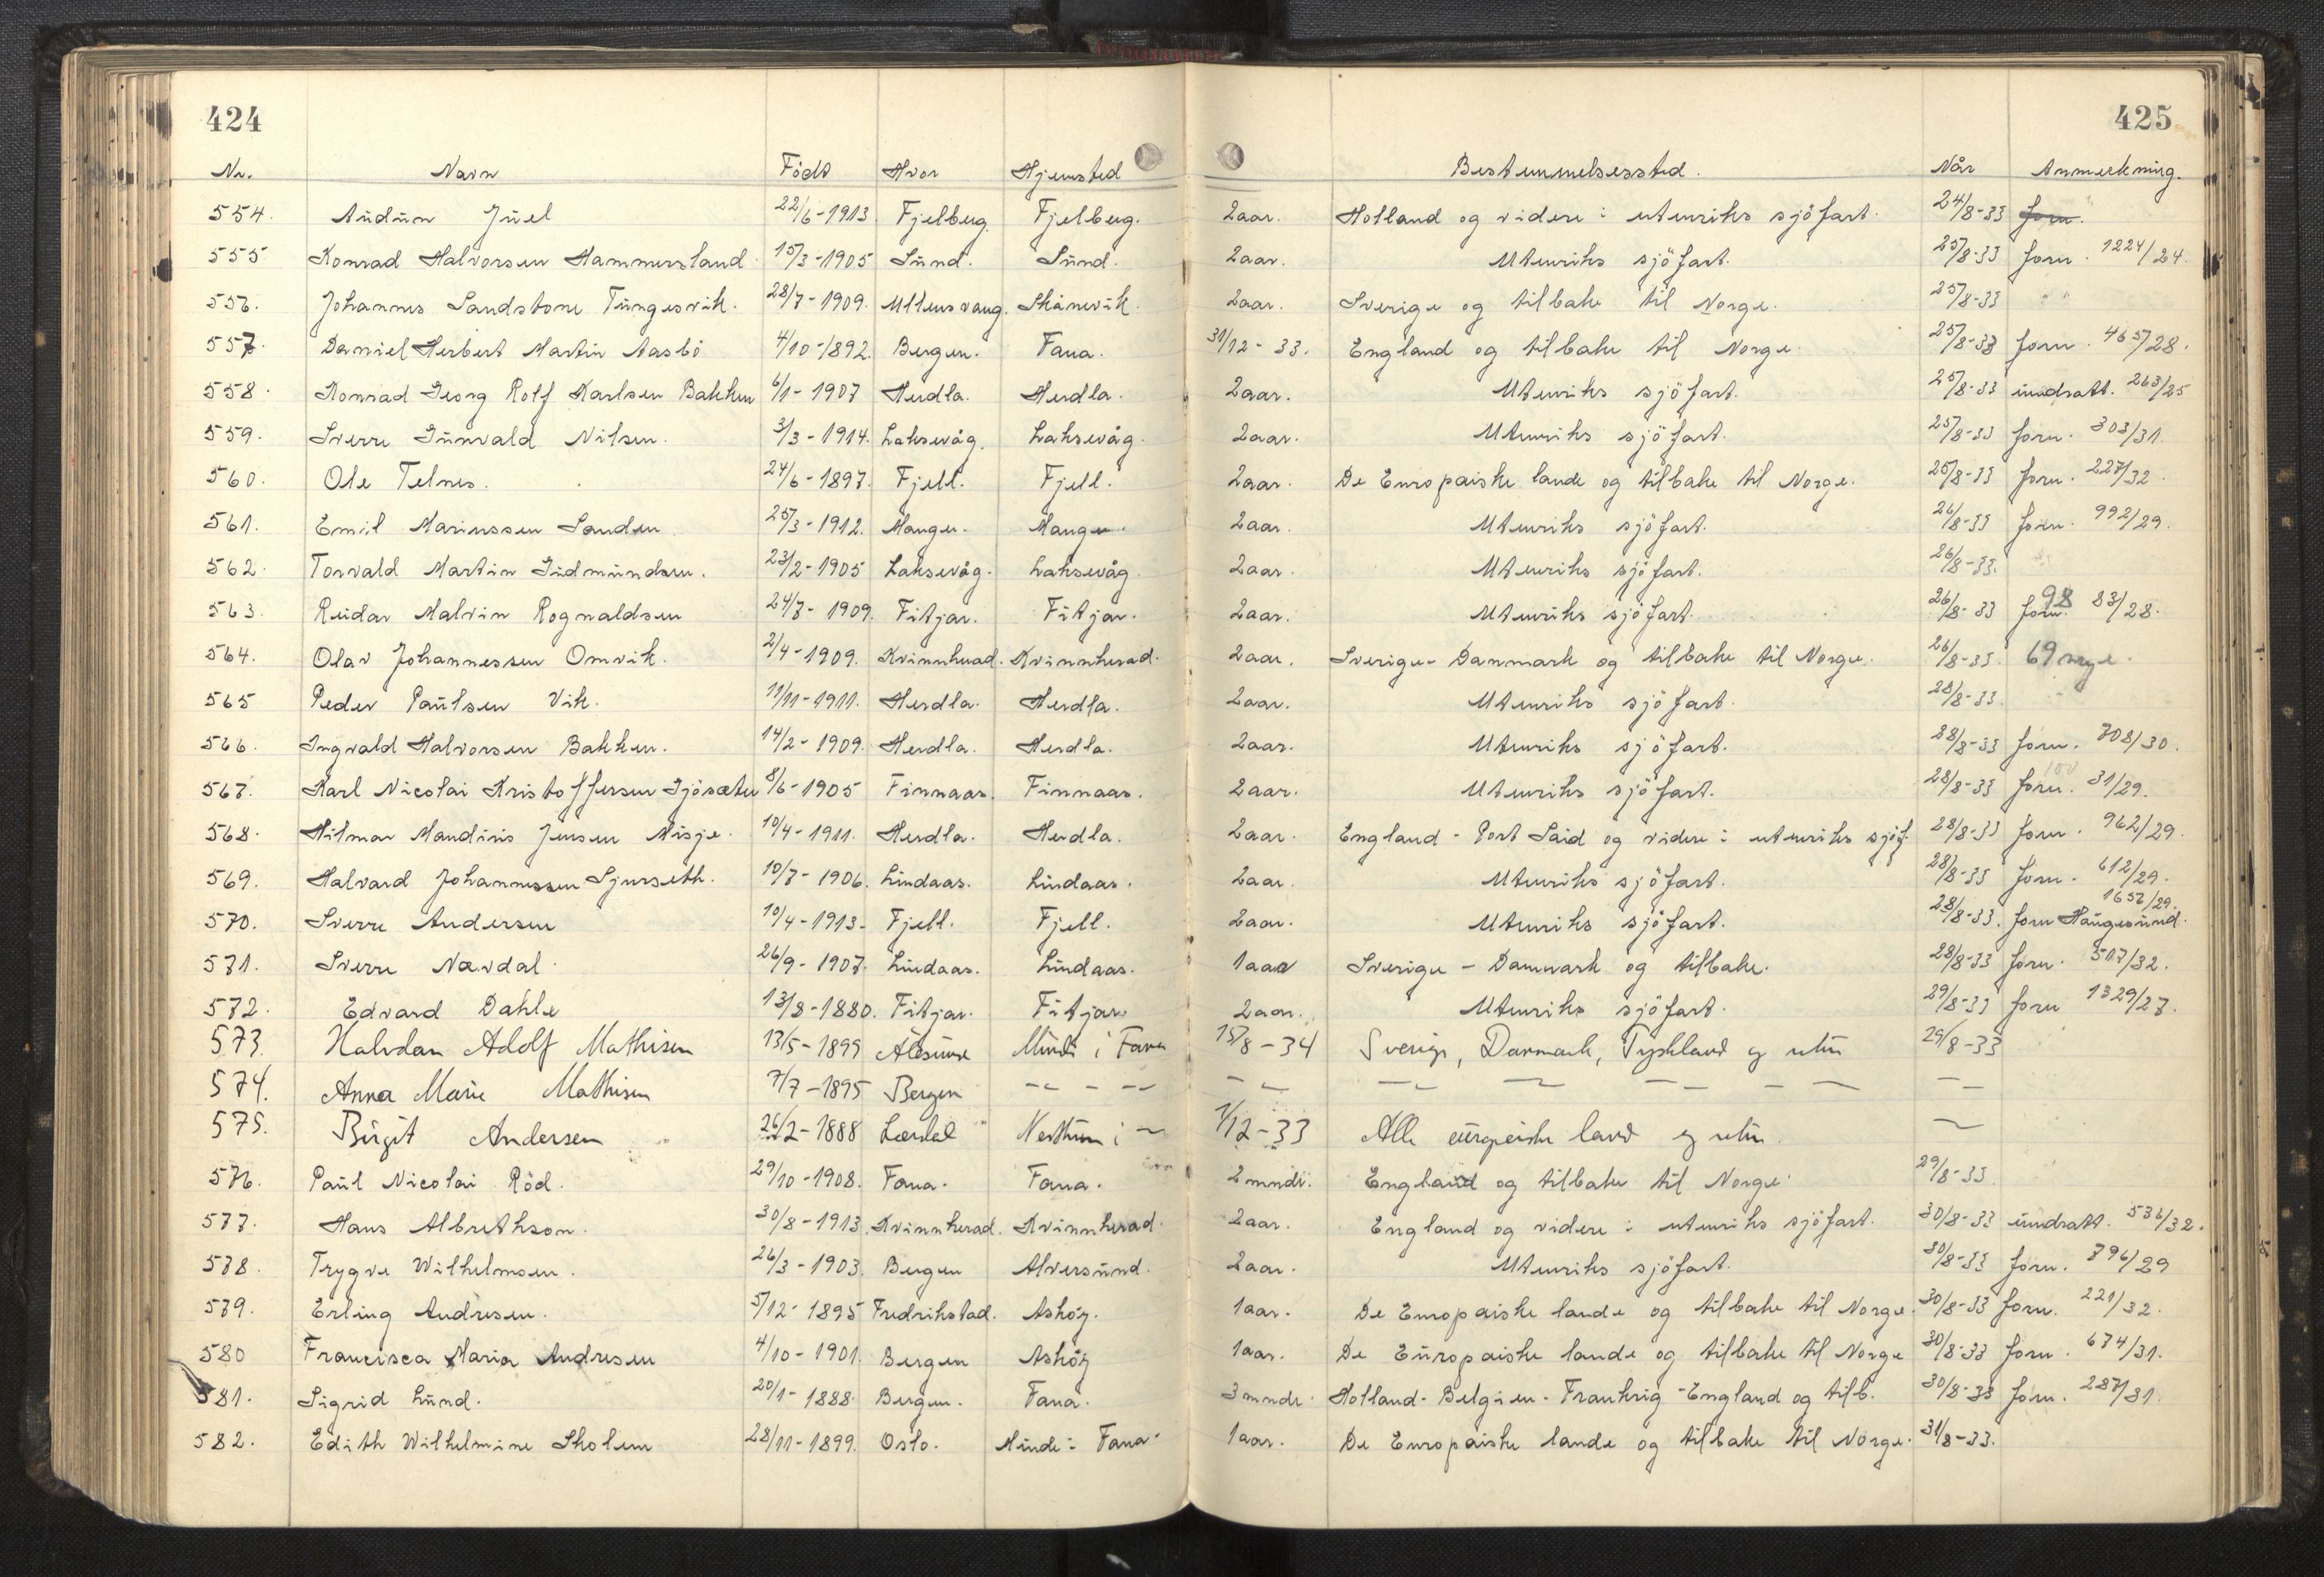 424
425
Nr. Navn Födt Hvor Hjemsted Bestemmelsessted. Når Anmerkning.
554. Audun Juel 22/6-1913. Fjelberg. Fjelberg. 2aar. Holland og videre i utenriks sjöfart. 24/8-33 forn.
555 Konrad Halvorsen Hammersland. 15/3-1905 Sund. Sund. 2aar. Utenriks sjöfart. 25/8-33 forn. 1224/24.
556. Johannes Sandstone Tungesvik. 28/7-1909. Ullensvang. Skånevik. 2aar. Sverige og tilbake til Norge. 25/8-33
557. Daniel Herbert Martin Aasbö 4/10-1892. Bergen. Fana. 31/12-33. England og tilbake til Norge. 25/8-33 forn. 465/28.
558. Konrad Georg Rolf Karlsen Bakken 6/1-1907 Herdla. Herdla. 2aar. Utenriks sjöfart. 25/8-33 inndratt. 263/25
559. Sverre Gunvald Nilsen. 3/3-1914. Laksevåg. Laksevåg. 2aar. Utenriks sjöfart. 25/8-33 forn. 303/31.
560. Ole Telnes. 24/6-1897. Fjell. Fjell. 2aar. De Europaiske lande og tilbake til Norge. 25/8-33 forn. 227/32.
561. Emil Marinssen Landen 25/3-1912. Manger. Manger. 2aar. Utenriks sjöfart. 26/8-33 forn. 992/29.
562. Torvald Martin Gudmundsen. 23/2-1905 Laksevåg. Laksevåg. 2aar. Utenriks sjöfart. 26/8-33.
563. Reidar Malvin Rognaldsen 24/7-1909. Fitjar. Fitjar. 2aar. Utenriks sjöfart. 26/8-33 forn. 98 83/28.
564. Olav Johannessen Omvik. 2/4-1909. Kvinnherad. Kvinnherad. 2aar. Sverige-Danmark og tilbake til Norge. 26/8-33. 69
565 Peder Paulsen Vik. 11/11-1911. Herdla. Herdla. 2aar. Utenriks sjöfart. 28/8-33.
566. Ingvald Halvorsen Bakken. 14/2-1909. Herdla. Herdla. 2aar. Utenriks sjöfart. 28/8-33 forn. 708/30.
567. Karl Nicolai Kristoffersen Gjösæter 8/6-1905 Finnaas. Finnaas. 2aar. Utenriks sjöfart. 28/8-33 forn. 31/29.
568. Hilmar Mandius Jensen Misje. 10/4-1911. Herdla. Herdla. 2aar. England - Port Said og videre i utenriks sjöf. 28/8-33 forn. 962/29.
569. Halvard Johannessen Sjurseth. 10/7-1906. Lindaas. Lindaas. 2aar. Utenriks sjöfart. 28/8-33 forn. 612/29.
570. Sverre Andersen 10/4-1913. Fjell. Fjell. 2aar. Utenriks sjöfart. 28/8-33. forn Haugesund. 1656/29.
571. Sverre Nævdal. 26/9-1907. Lindaas. Lindaas. 1aar Sverige - Danmark og tilbake. 28/8-33 forn. 517/32.
572. Edvard Dahle 13/8-1880. Fitjar. Fitjar 2aar. Utenriks sjöfart. 29/8-33 forn 1329/27.
573. Halvdan Adolf Mathisen 13/5-1899 Ålesund Minde i Fana 15/8-34 Sverige, Danmark, Tyskland og retur 29/8-33
574. Anna Marie Mathisen 7/7-1895 Bergen
575. Birgit Andersen 26/2-1888 Lærdal Nesttun i 1/12-33 Alle europeiske land og retur.
576. Paul Nicolai Röd. 29/10-1908. Fana. Fana. 2 mndr. England og tilbake til Norge. 29/8-33.
577. Hans Albrethson. 30/8-1913. Kvinnherad. Kvinnherad. 2aar. England og videre i utenriks sjöfart. 30/8-33 inndratt. 536/32.
578. Trygve Wilhelmsen. 26/3-1903. Bergen Alversund. 2aar. Utenriks sjöfart. 30/8-33 forn. 796/29
579. Erling Andresen. 5/12-1895 Fredrikstad. Asköy. 1aar. De Europaiske lande og tilbake til Norge. 30/8-33 forn. 221/32.
580 Francisca Maria Andresen 4/10-1901. Bergen Asköy 1aar. De Europaiske lande og tilbake til Norge 30/8-33 forn. 674/31.
581. Sigrid Lund. 20/1-1888. Bergen. Fana. 3 mndr. Holland - Belgien - Frankrig - England og tilb. 30/8-33 forn. 287/31.
582. Edith Wilhelmine Skolem 28/11-1899. Oslo. Minde i Fana. 1aar. De Europaiske lande og tilbake til Norge. 31/8-33.